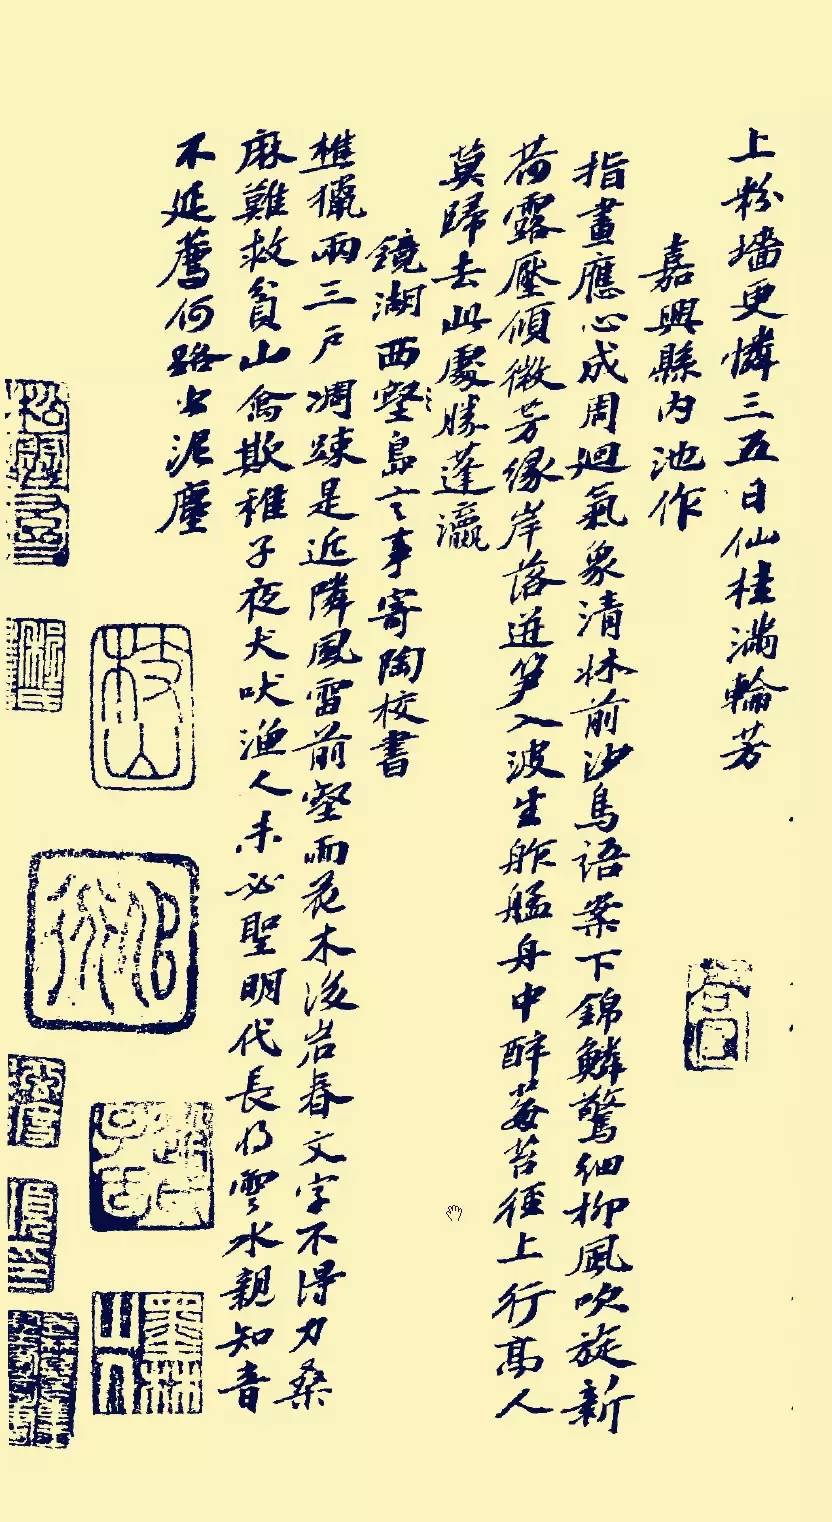 上粉墻更憐三五日仙桂滿輪芳
嘉興縣内池作
指畫應心成周廻氣象清牀前沙鳥語案下錦鱗驚細柳風吹旋新
荷露壓傾微芳緣岸落迸笋入波生舴艋舟中醉莓苔徑上行高人
莫歸去此處勝蓬瀛
鏡湖西壑島言事寄陶校書
樵獵兩三戶凋踈是近隣風雷前壑雨花木後岩春文字不得力桑
麻難救貧山禽欺稚子夜犬吠漁人未必聖明代長將雲水親知音
不延薦何路出泥塵
枝山